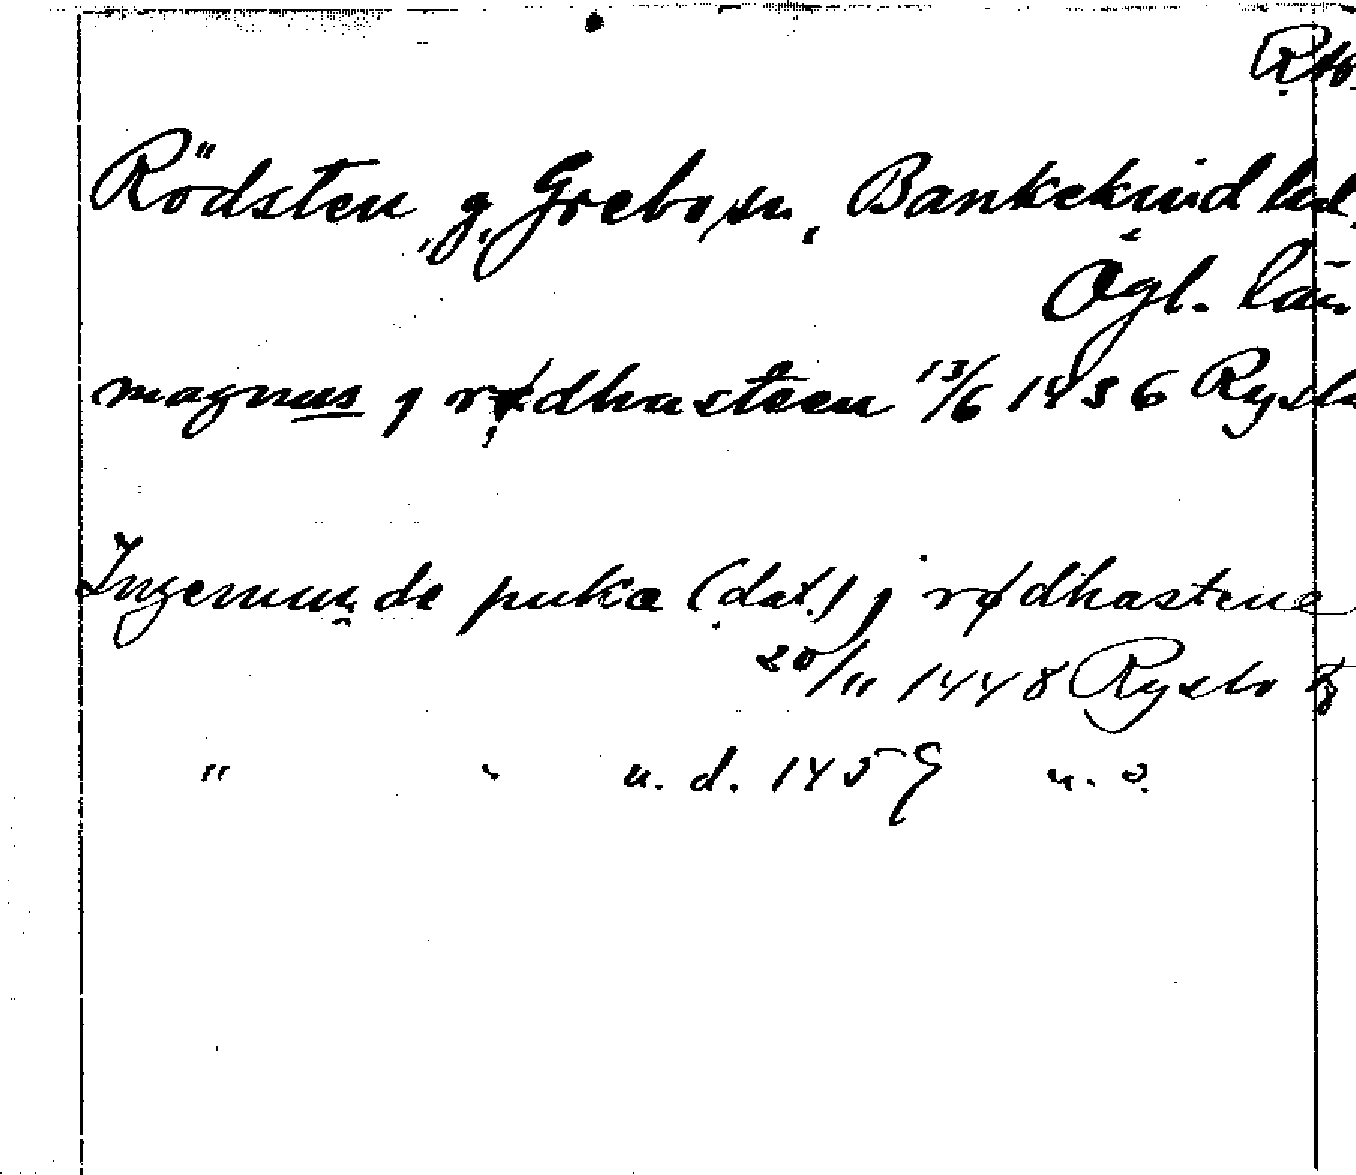 Rödsten, g, Grebo sn, Bankekind hd,
Ögl. län
magnus j rødhasteen 13/6 1456 Rysbo
Ingemunde puka (dat.) j rødhastene
20/11 1448 Rysbo
" " u. d. 1459 u. o.